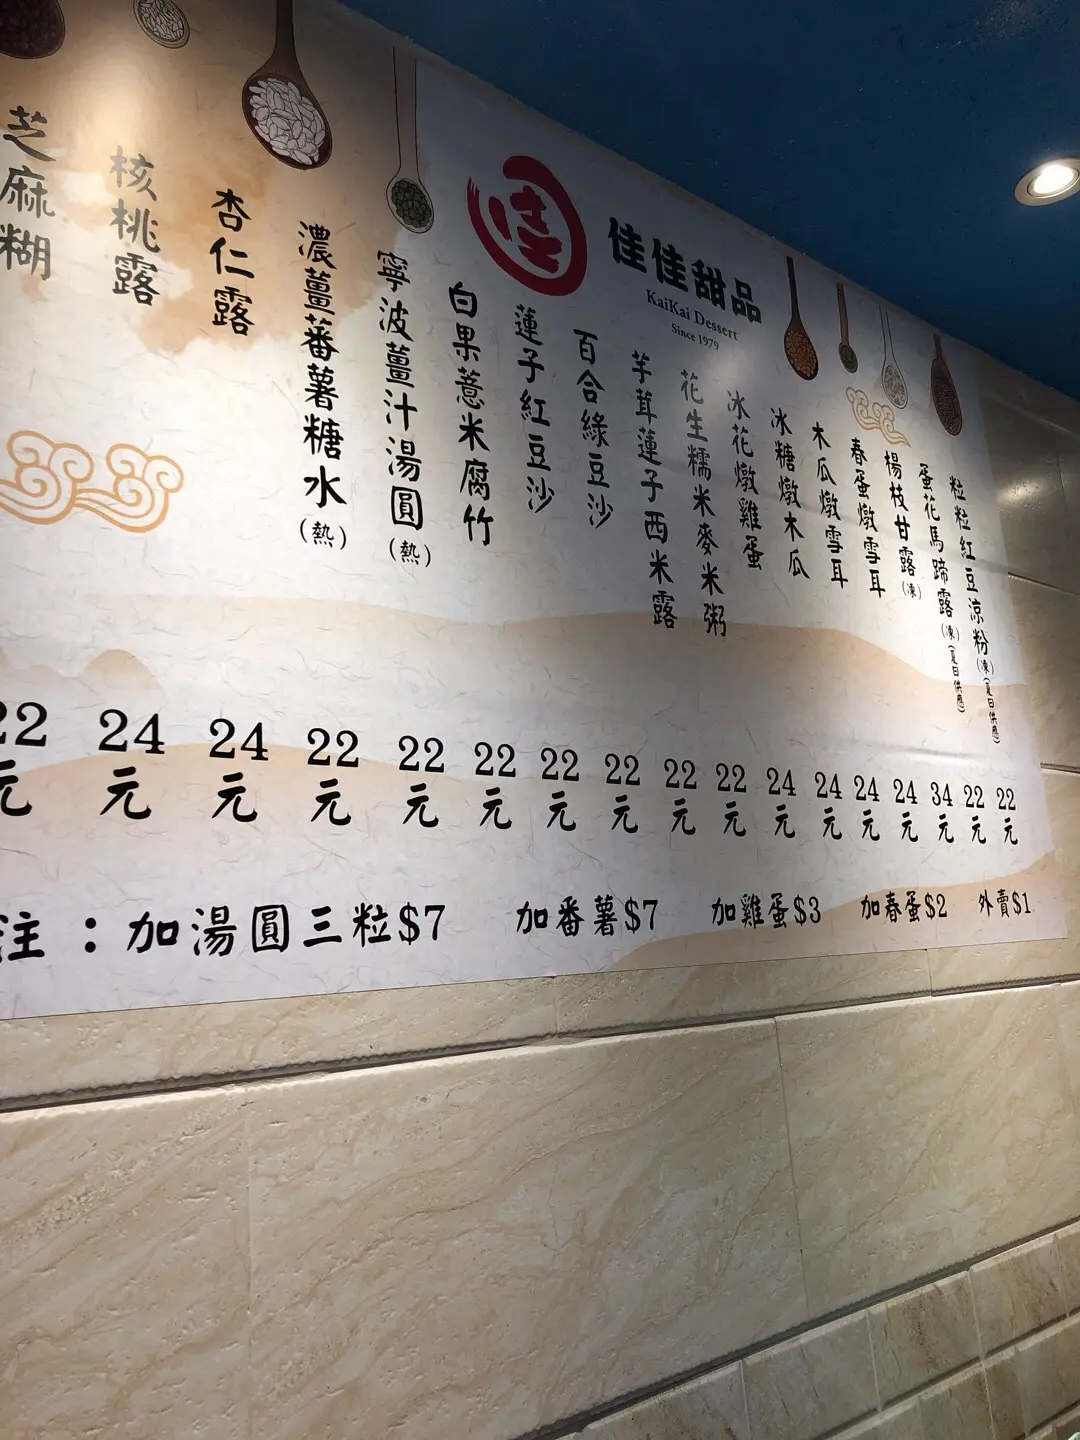 佳
佳佳甜品
KaiKai Dessert
Since 1979
芝麻糊
核桃露
杏仁露
濃薑蕃薯糖水(熱)
寧波薑汁湯圓(熱)
白果薏米腐竹
蓮子紅豆沙
百合綠豆沙
芋茸蓮子西米露
花生糯米麥米粥
冰花燉雞蛋
冰糖燉木瓜
木瓜燉雪耳
春蛋燉雪耳
楊枝甘露(凍)
蛋花馬蹄露(凍)(夏日供應)
粒粒紅豆涼粉(凍)(夏日供應)
22元
24元
24元
22元
22元
22元
22元
22元
22元
22元
24元
24元
24元
24元
34元
22元
22元
注：加湯圓三粒$7 加番薯$7 加雞蛋$3 加春蛋$2 外賣$1